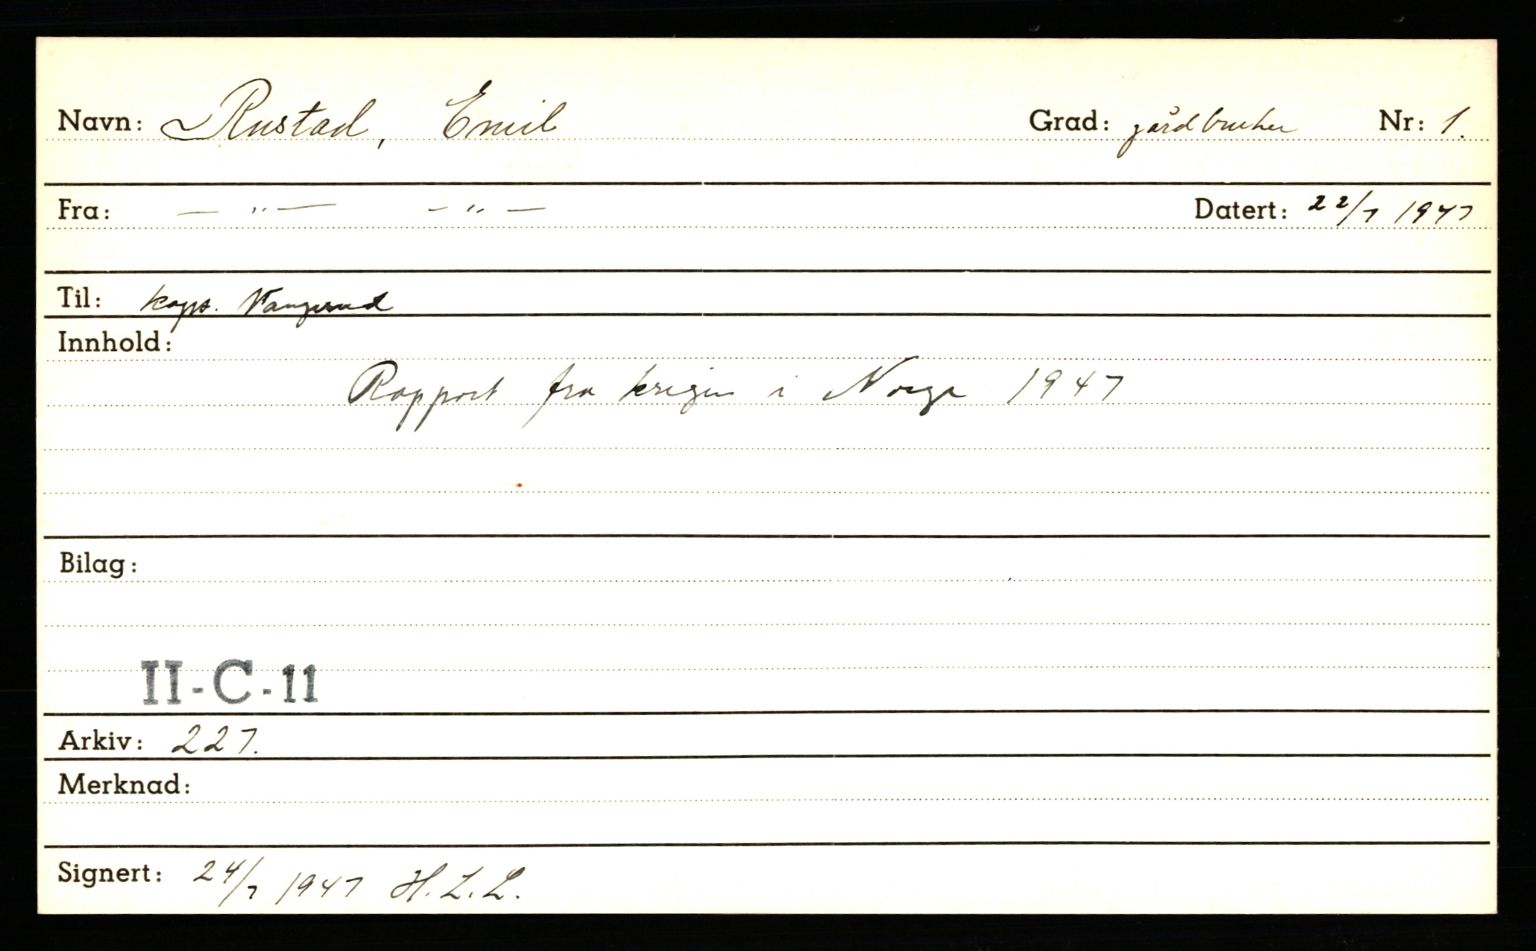 Navn: Rustad, Emil Grad: gårdbruker Nr: 1.
Fra: — „ — — „ — Datert: 22/7 1947
Til: kapt. Vangerud
Innhold:
Rapport fra krigen i Norge 1947
Bilag:
II-C-11
Arkiv: 227.
Merknad:
Signert: 24/7 1947 H.L.L.